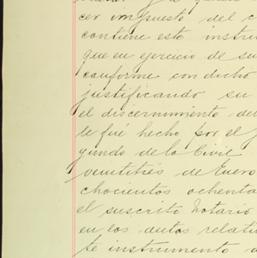 cer impuesto del c
contiene este instru
que en ejercicio de su
conforme con dicho
justificando su
el discernimiento de
le fué hecho por el j
gundo de lo Civil
veintitrés de Enero
chocientos ochenta
el suscrito Notario
en los autos relati
te instrumento a